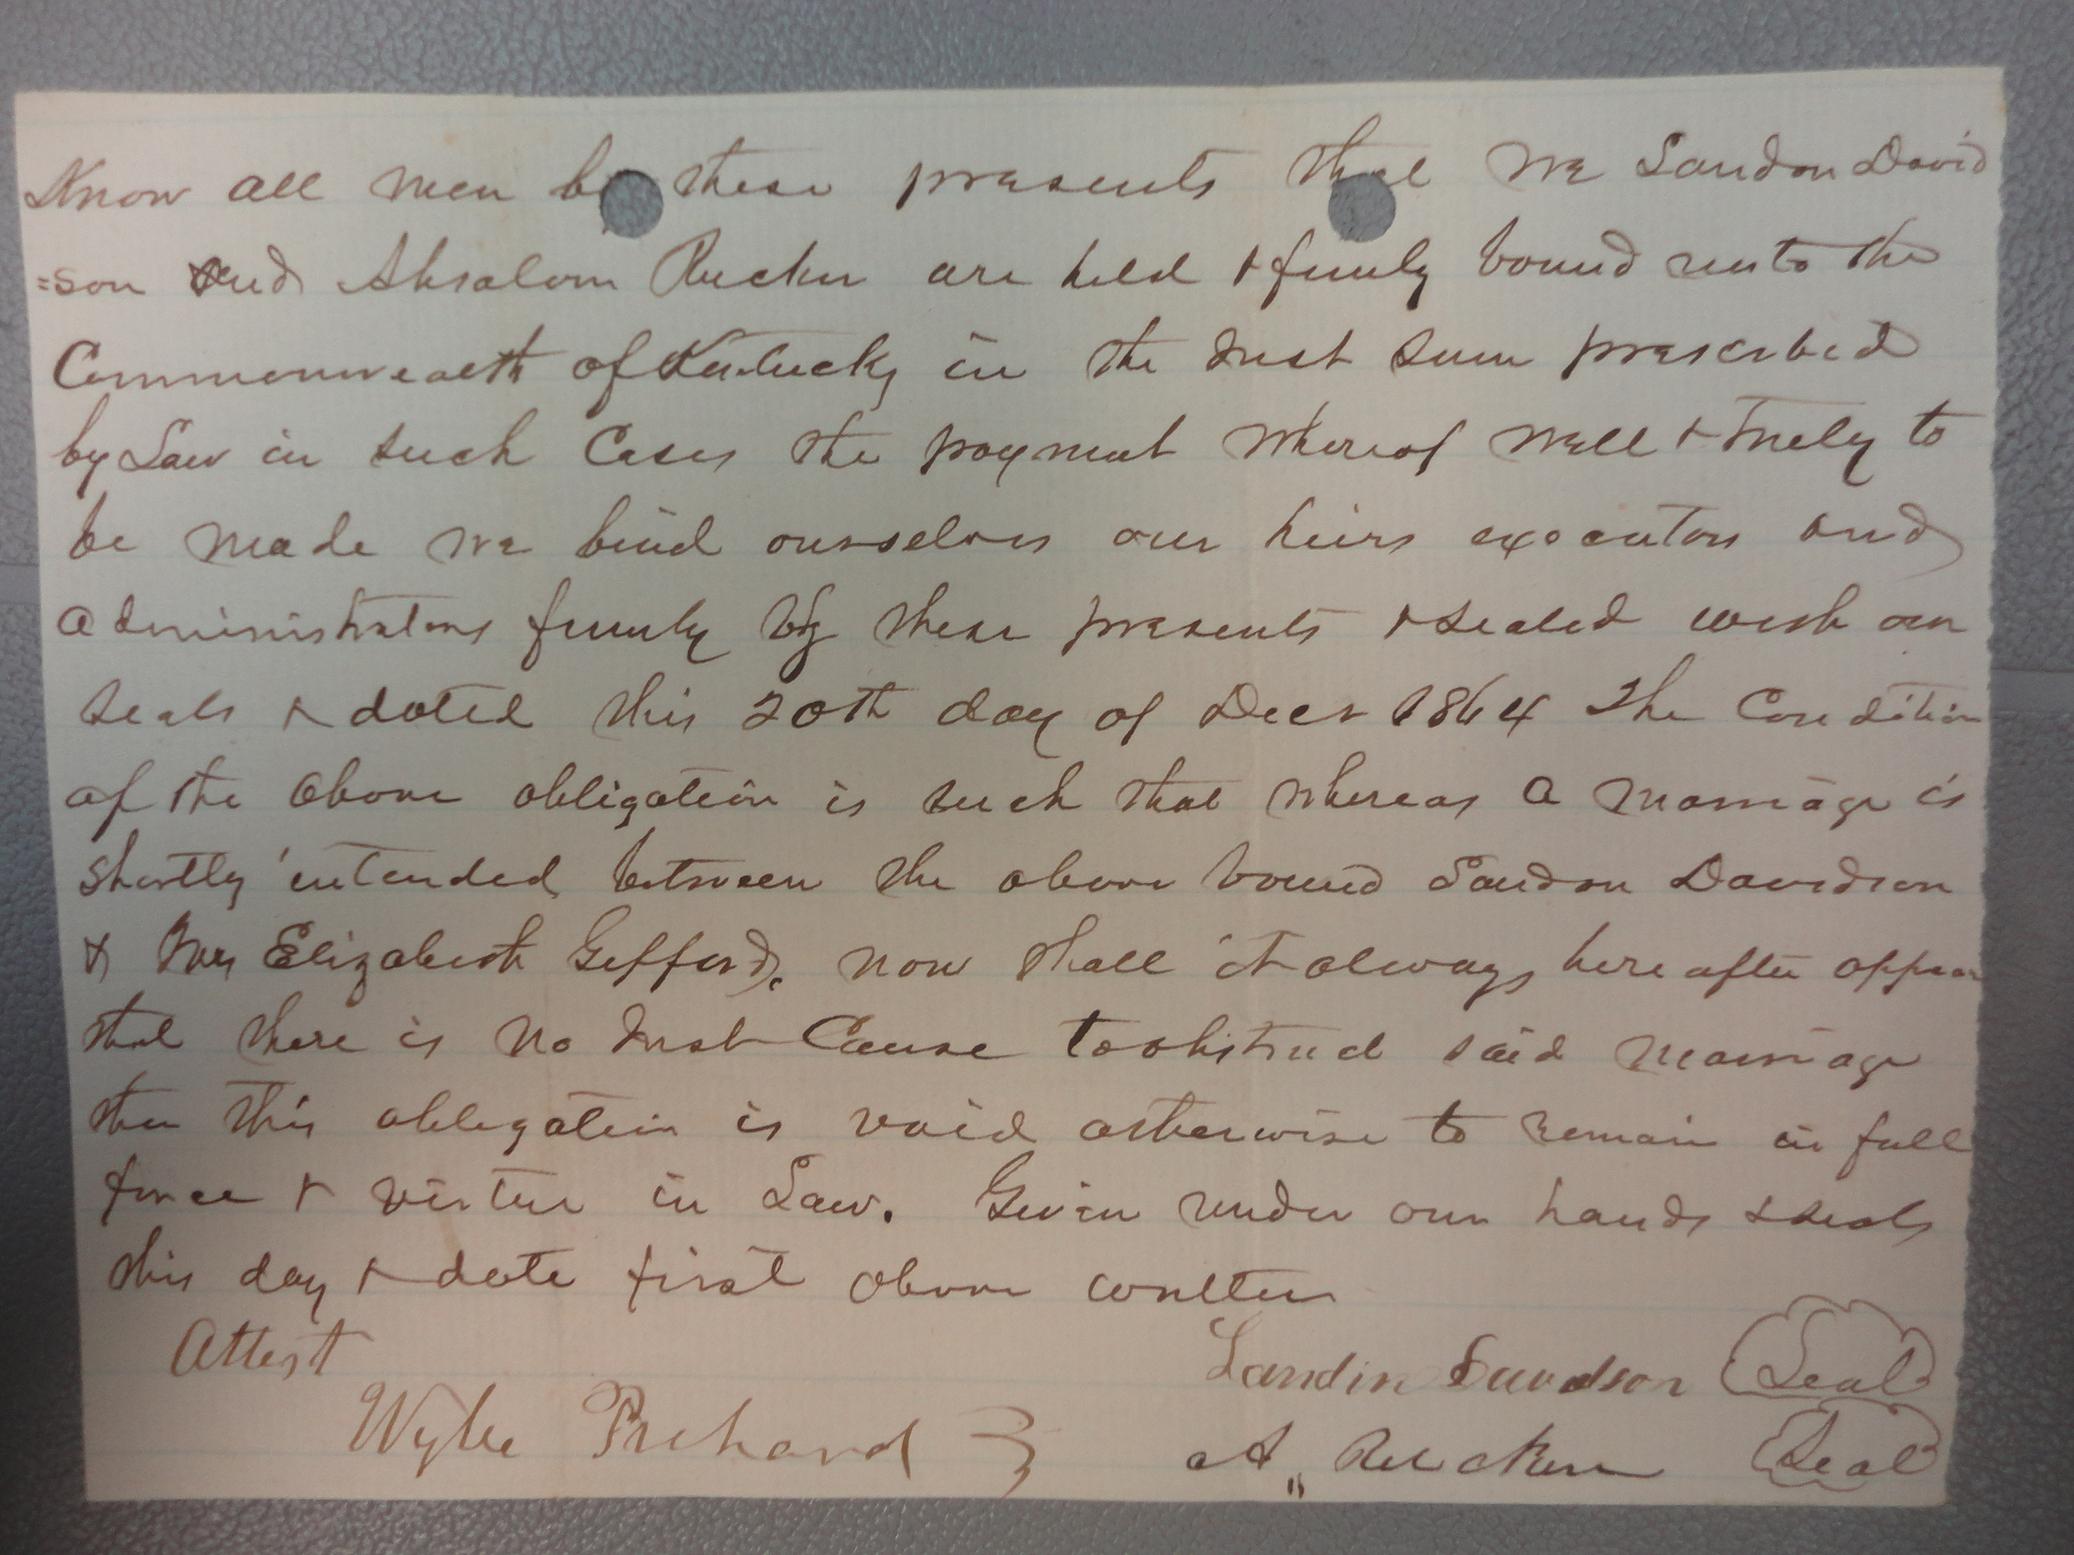 Know all men by these presents that we Landon David
=son and Absalom Rucker are held & firmly bound unto the
Commonwealth of Kentucky in the Just sum prescribed
by Law in such Cases the payment whereof well & Truly to
be made we bind ourselves our heirs executors and
administrators firmly by these presents & sealed with our
seals & dated this 20th day of Decr 1864 The Condition
of the above obligation is such that whereas a marriage is
shortly intended between the above bound Landon Davidson
& Mrs Elizabeth Gifford. now shall it always here after appear
that there is no Just Cause to obstruct said marriage
then this obligation is void otherwise to remain in full
force & virtue in Law. Given under our hands & seals
this day & date first above written
Attest
Landin Davidson Seal
Wylie Prichard
A,, Rucker Seal